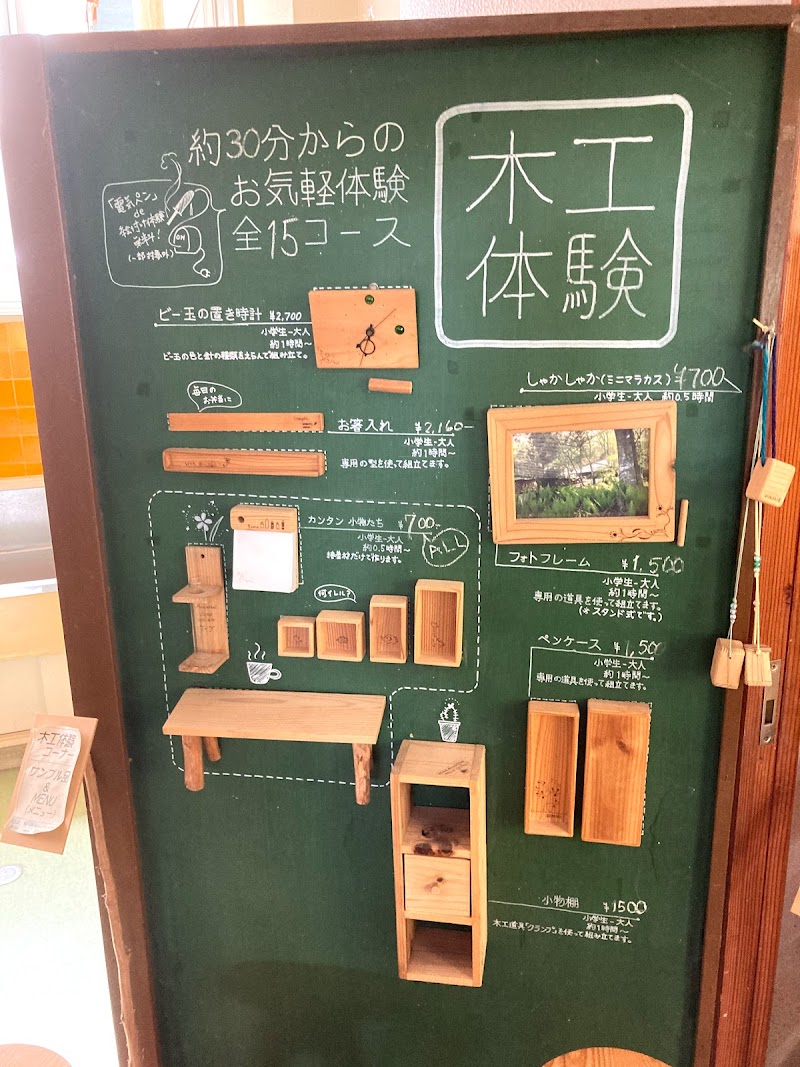 木工
体験
約30分からの
お気軽体験
全15コース
「電気ペン」
de
絵付け体験
無料!
(一部対象外)
ON
ビー玉の置き時計 ¥2,700
小学生-大人
約1時間〜
ビー玉の色と針の種類をえらんで組み立て。
しゃかしゃか(ミニマラカス) ¥700
小学生-大人 約0.5時間
毎日の
お弁当に
お箸入れ ¥2,160-
小学生-大人
約1時間〜
専用の型を使って組立てます。
カンタン 小物たち ¥700-
小学生-大人
約0.5時間〜
接着材だけで作ります。
ALL
何イレル?
フォトフレーム ¥1,500
小学生-大人
約1時間〜
専用の道具を使って組立てます。
(*スタンド式です。)
ペンケース ¥1,500
小学生-大人
約1時間〜
専用の道具を使って組立てます。
小物棚 ¥1500
小学生-大人
約1時間〜
木工道具"クランプ"を使って組み立てます。
木工体験
コーナー
サンプル品
&
MENU
(メニュー)